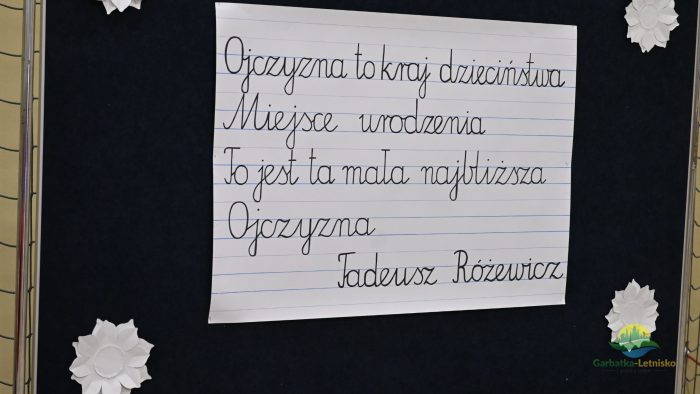 Ojczyzna to kraj dzieciństwa
Miejsce urodzenia
To jest ta mała najbliższa
Ojczyzna
Tadeusz Różewicz
Garbatka-Letnisko